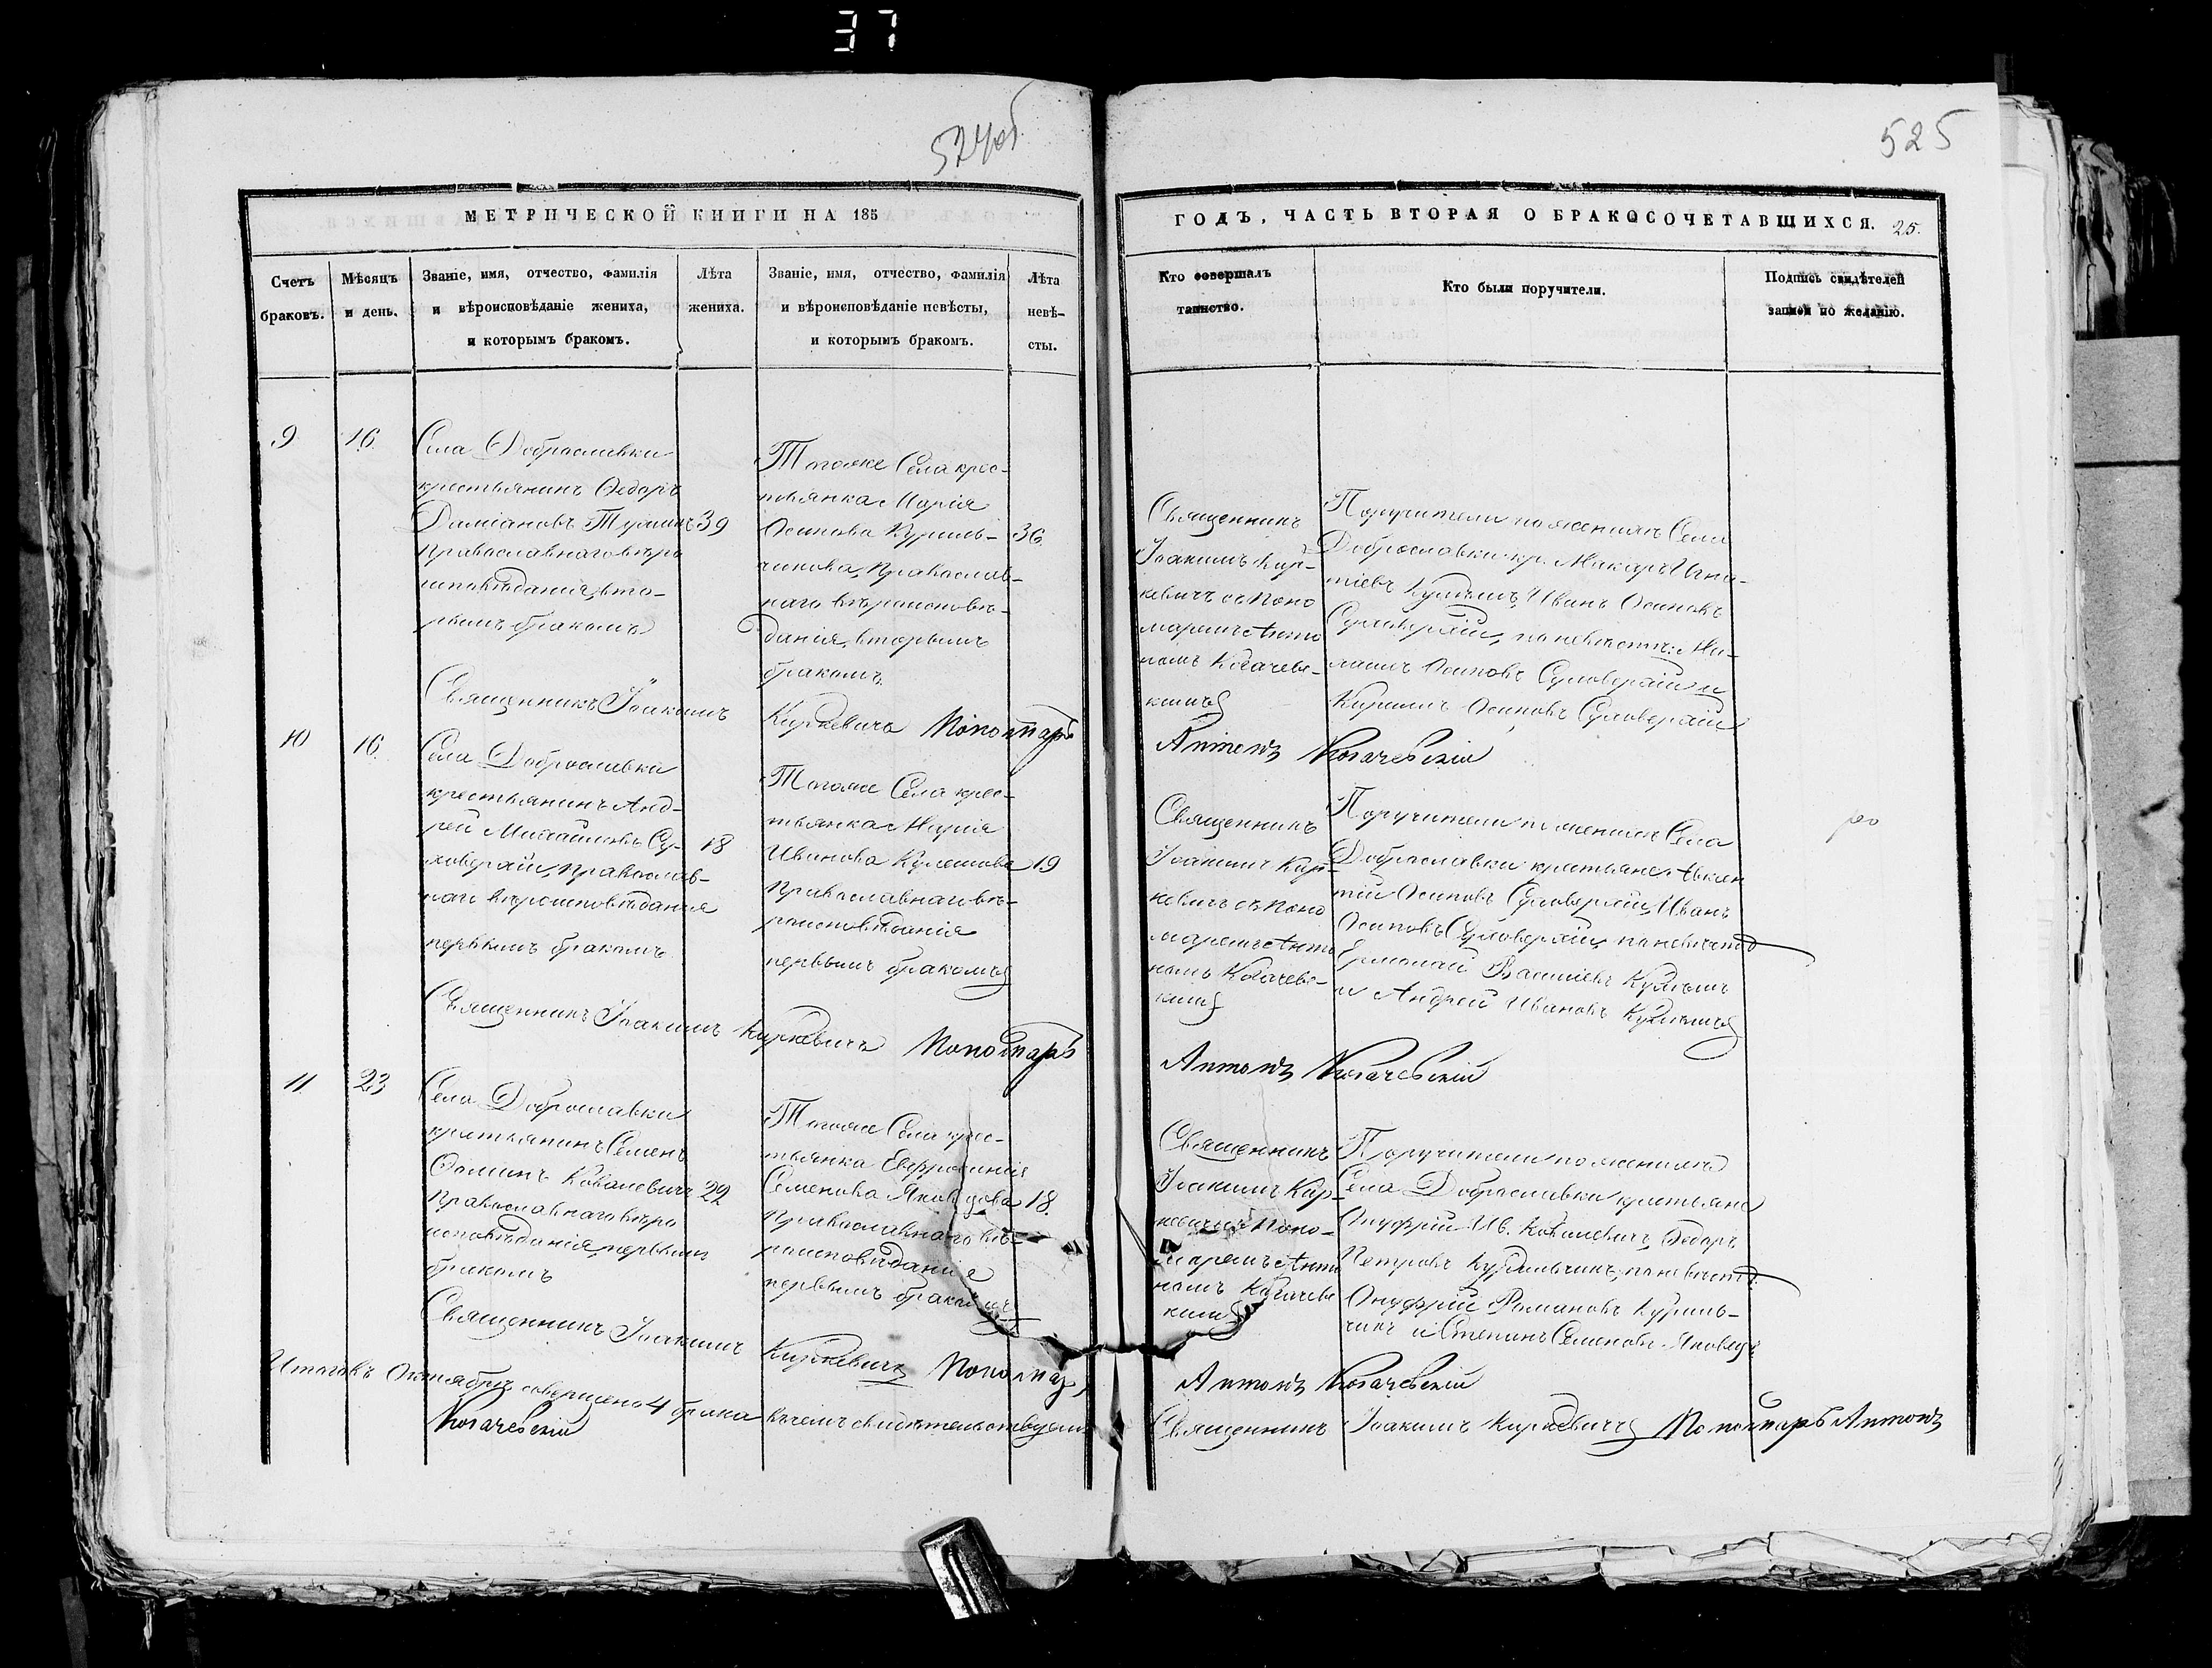 37
524 об
525
МЕТРИЧЕСКОЙ КНИГИ НА 185
ГОДЪ, ЧАСТЬ ВТОРАЯ О БРАКОСОЧЕТАВШИХСЯ.
25.
Счетъ
браковъ.
Мѣсяцъ
и день.
Званіе, имя, отчество, фамилія
и вѣроисповѣданіе жениха,
и которымъ бракомъ.
Лѣта
жениха.
Званіе, имя, отчество, фамилія
и вѣроисповѣданіе невѣсты,
и которымъ бракомъ.
Лѣта
невѣ-
сты.
Кто совершалъ
таинство.
Кто были поручители.
Подпись свидѣтелей
записи по желанію.
9
16.
Села Доброславки
крестьянинъ Ѳедоръ
Даміановъ
православнаго вѣро
исповѣданія, вто-
рымъ бракомъ
39
Тогоже Села крес-
тьянка Марія
Осипова Куриль-
чикова, Православ-
наго вѣроисповѣ-
данія, вторымъ
бракомъ.
36.
Священникъ
Іоакимъ Кир-
кевичъ съ Поно
маремъ Анто
номъ Когачевс-
кимъ
Поручители по женихѣ Села
Доброславки кр. Макаръ Игна-
тіевъ Иванъ Осиповъ
Суховерхій, по невѣстѣ:
Осиповъ Суховерхій и
Осиповъ Суховерхій
Священникъ Іоакимъ Киркевичъ Пономарь
Антонъ Когачевскій
10
16.
Села Доброславки
крестьянинъ Анд-
рей Михайловъ Су-
ховерхій, Православ-
наго вѣроисповѣданія
первымъ бракомъ
18
Тогоже Села крес-
тьянка Марія
Иванова Кулешова
Православнаго вѣ-
роисповѣданія
первымъ бракомъ
19
Священникъ
Іоакимъ Кир-
кевичъ съ Поно
маремъ Анто
номъ Когачевс-
кимъ
Поручители по женихѣ Села
Доброславки крестьяне Авксен
тій Осиповъ Суховерхій, Иванъ
Осиповъ Суховерхій, по невѣстѣ
Ермолай Василіевъ
и Андрей Ивановъ
Священникъ Іоакимъ Киркевичъ Пономарь
Антонъ Когачевскій
11.
23
Села Доброславки
крестьянинъ Семенъ
Ѳоминъ Ковалевичъ
Православнаго вѣро
исповѣданія, первымъ
бракомъ
22
Тогоже Села крес-
тьянка Евфросинія
Семенова Яковцова
Православнаго вѣ-
роисповѣданія
первымъ бракомъ
18.
Священникъ
Іоакимъ Кир-
кевичъ съ Поно-
маремъ Анто
номъ Когачевс
кимъ
Поручители по женихѣ
Села Доброславки крестьяне
Онуфрій Ив. Ковалевичъ, Ѳедоръ
Петровъ Курильчикъ, по невѣстѣ
Онуфрій Романовъ Куриль-
чикъ и Степанъ Семеновъ Яковецъ
Священникъ Іоакимъ Киркевичъ Пономарь
Антонъ Когачевскій
Итого въ Октябрѣ совершено 4 брака въ чемъ свидѣтельствуемъ Священникъ Іоакимъ Киркевичъ Пономарь Антонъ
Когачевскій